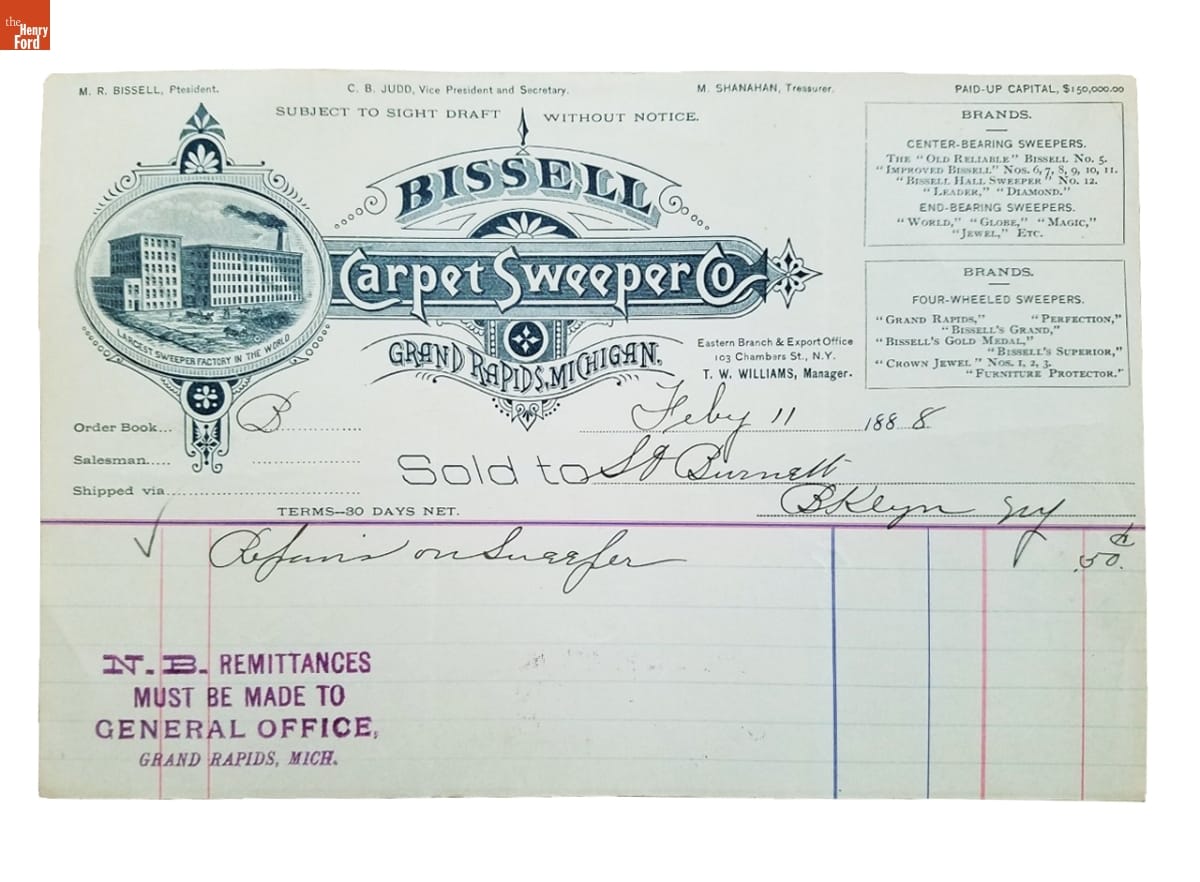 the
Henry
Ford
M. R. BISSELL, President.
C. B. JUDD, Vice President and Secretary.
M. SHANAHAN, Treasurer.
PAID-UP CAPITAL, $150,000.00
SUBJECT TO SIGHT DRAFT WITHOUT NOTICE.
BISSELL
Carpet Sweeper Co
GRAND RAPIDS, MICHIGAN.
LARGEST SWEEPER FACTORY IN THE WORLD
Eastern Branch & Export Office
103 Chambers St., N.Y.
T. W. WILLIAMS, Manager.
BRANDS.
CENTER-BEARING SWEEPERS.
THE "OLD RELIABLE" BISSELL NO. 5.
"IMPROVED BISSELL" NOS. 6, 7, 8, 9, 10, 11.
"BISSELL HALL SWEEPER" NO. 12.
"LEADER," "DIAMOND."
END-BEARING SWEEPERS.
"WORLD," "GLOBE," "MAGIC,"
"JEWEL," ETC.
BRANDS.
FOUR-WHEELED SWEEPERS.
"GRAND RAPIDS," "PERFECTION,"
"BISSELL'S GRAND,"
"BISSELL'S GOLD MEDAL,"
"BISSELL'S SUPERIOR,"
"CROWN JEWEL" NOS. 1, 2, 3.
"FURNITURE PROTECTOR."
Order Book... B
Feby 11 1888
Salesman.....
Sold to Burnett
Shipped via
Bklyn NY
TERMS--30 DAYS NET.
Repairs on Sweeper .50 ¢
N. B. REMITTANCES
MUST BE MADE TO
GENERAL OFFICE,
GRAND RAPIDS, MICH.